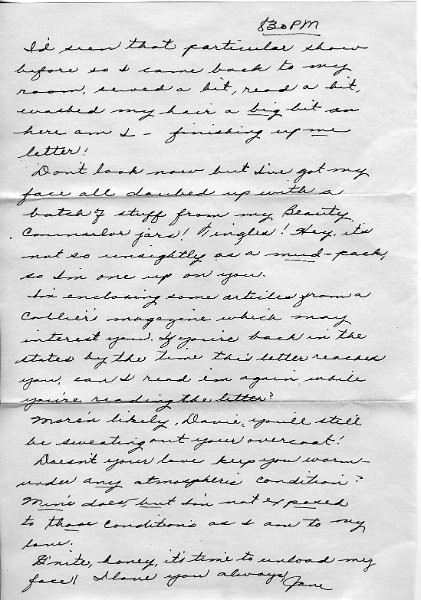 8:30 PM
I'd seen that particular show
before so I came back to my
room, sewed a bit, read a bit,
washed my hair a big bit an
here am I - finishing up me
letter!
Don't look now but I've got my
face all daubed up with a
batch of stuff from my Beauty
Counselor jars! Tingles! Hey, it's
not so unsightly as a mud-pack,
so I'm one up on you.
I'm enclosing some articles from a
Collier's magazine which may
interest you. If you're back in the
states by the time this letter reaches
you, can I read 'em again while
you're reading the letter?
More'n likely, Davie, you'll still
be sweating out your overcoat!
Doesn't your love keep you warm
under any atmospheric condition?
Mine does but I'm not exposed
to those conditions as I am to my
love.
G'nite, honey, it's time to unload my
face! I love you always, Jane